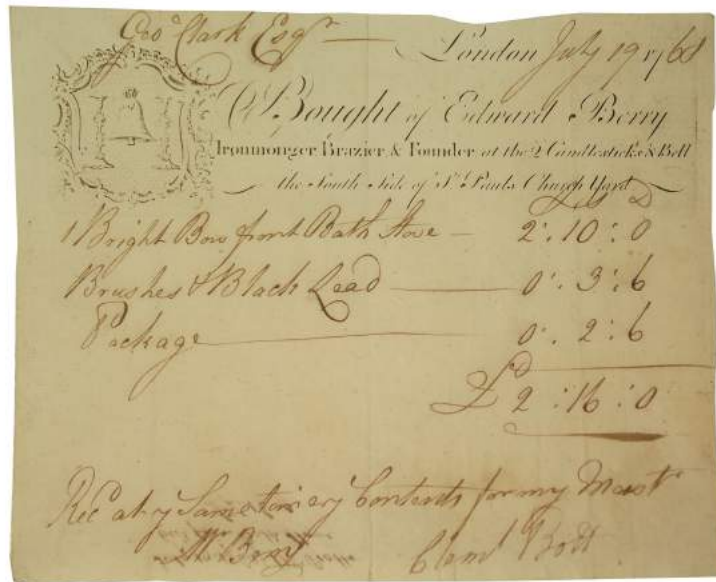 Geo.º Clark Esqr London July 19 1768
Bought of Edward Berry
Ironmonger Brazier & Founder at the 2 Candlesticks & Bell
the South Side of St. Pauls Church Yard
£ S D
1 Bright Bow front Bath Stove 2:10:0
Brushes & Black Lead 0:3:6
Package 0:2:6
£ 2:16:0
Recd at ye Same time ye Contents for my Mastr
Mr Berry